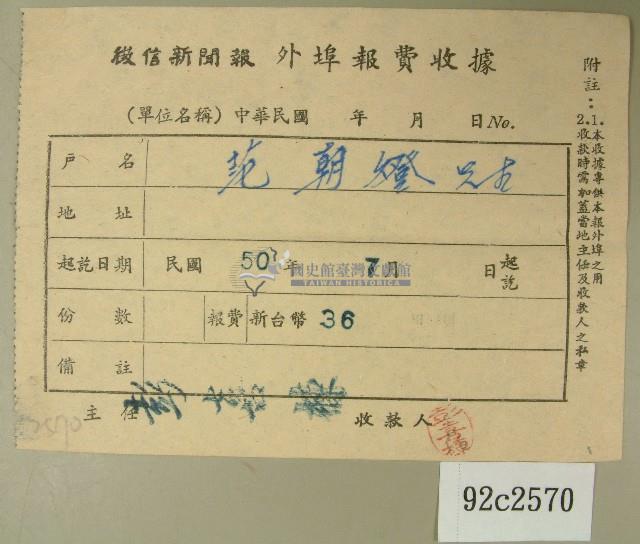 徵信新聞報 外埠報費收據
(單位名稱)中華民國 年 月 日No.
戶名 范朝燈
地址
起訖日期 民國 50 年 7月 日 起訖
份數 報費 新台幣 36
備註
主任 收款人
附註:
1.本收據專供本報外埠之用
2.收款時需加蓋當地主任及收款人之私章
國史館臺灣文獻館
TAIWAN HISTORICA
2570
92c2570